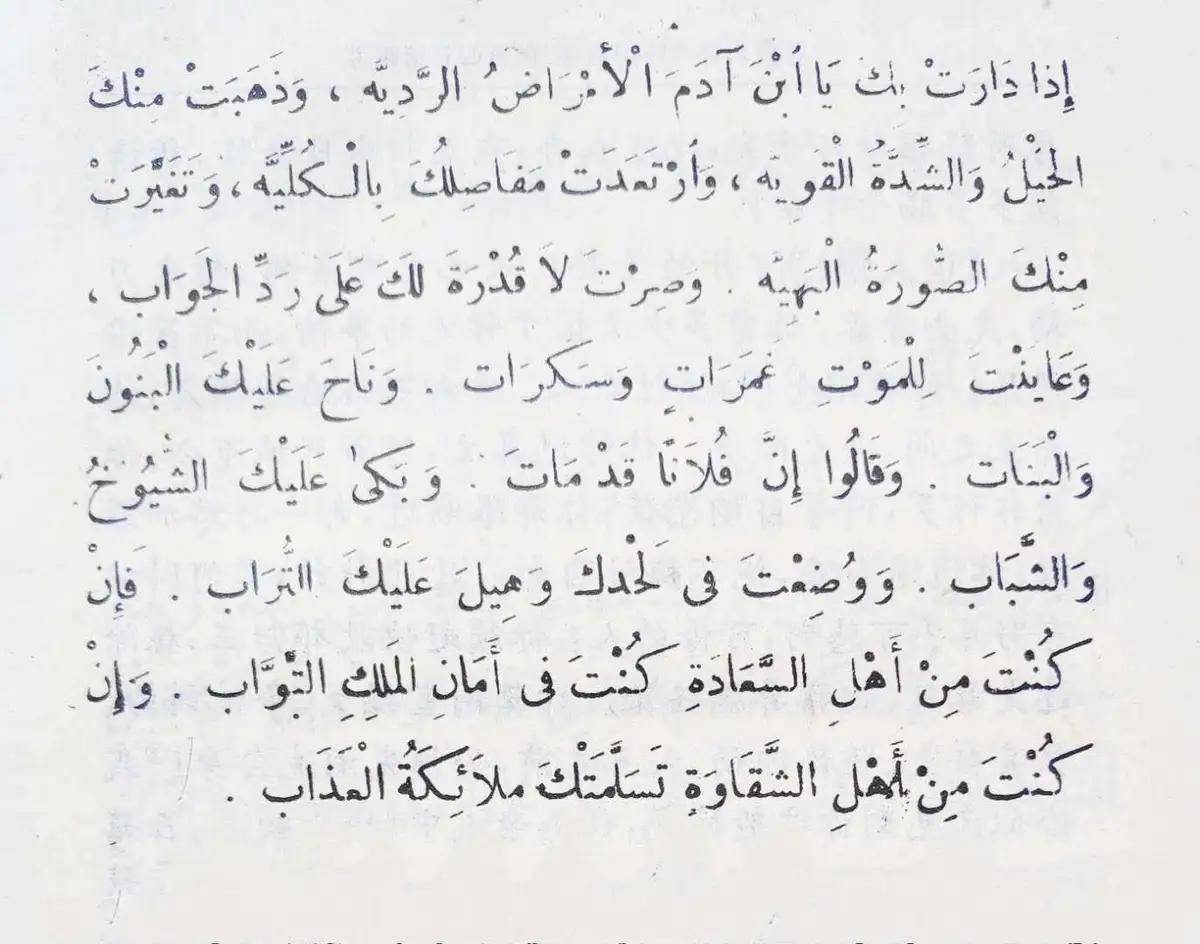 إِذَا دَارَتْ بِكَ يَا ابْنَ آدَمَ الْأَمْرَاضُ الرَّدِيَّه ، وَذَهَبَتْ مِنْكَ
الْحَيْلُ وَالشِّدَّةُ الْقَوِيَّه ، وَارْتَعَدَتْ مَفَاصِلُكَ بِالْكُلِّيَّه ، وَتَغَيَّرَتْ
مِنْكَ الصُّورَةُ الْبَهِيَّه . وَصِرْتَ لاَ قُدْرَةَ لَكَ عَلَى رَدِّ الْجَوَاب ،
وَعَايَنْتَ لِلْمَوْتِ غَمَرَاتٍ وَسَكَرَات . وَنَاحَ عَلَيْكَ الْبَنُونَ
وَالْبَنَات . وَقَالُوا إِنَّ فُلاَنًا قَدْ مَات . وَبَكَى عَلَيْكَ الشُّيُوخُ
وَالشَّبَاب . وَوُضِعْتَ فِى لَحْدِكَ وَهِيلَ عَلَيْكَ التُّرَاب . فَإِنْ
كُنْتَ مِنْ أَهْلِ السَّعَادَةِ كُنْتَ فِى أَمَانِ الْمَلِكِ التَّوَّاب . وَإِنْ
كُنْتَ مِنْ أَهْلِ الشَّقَاوَةِ تَسَلَّمَتْكَ مَلاَئِكَةُ الْعَذَاب .